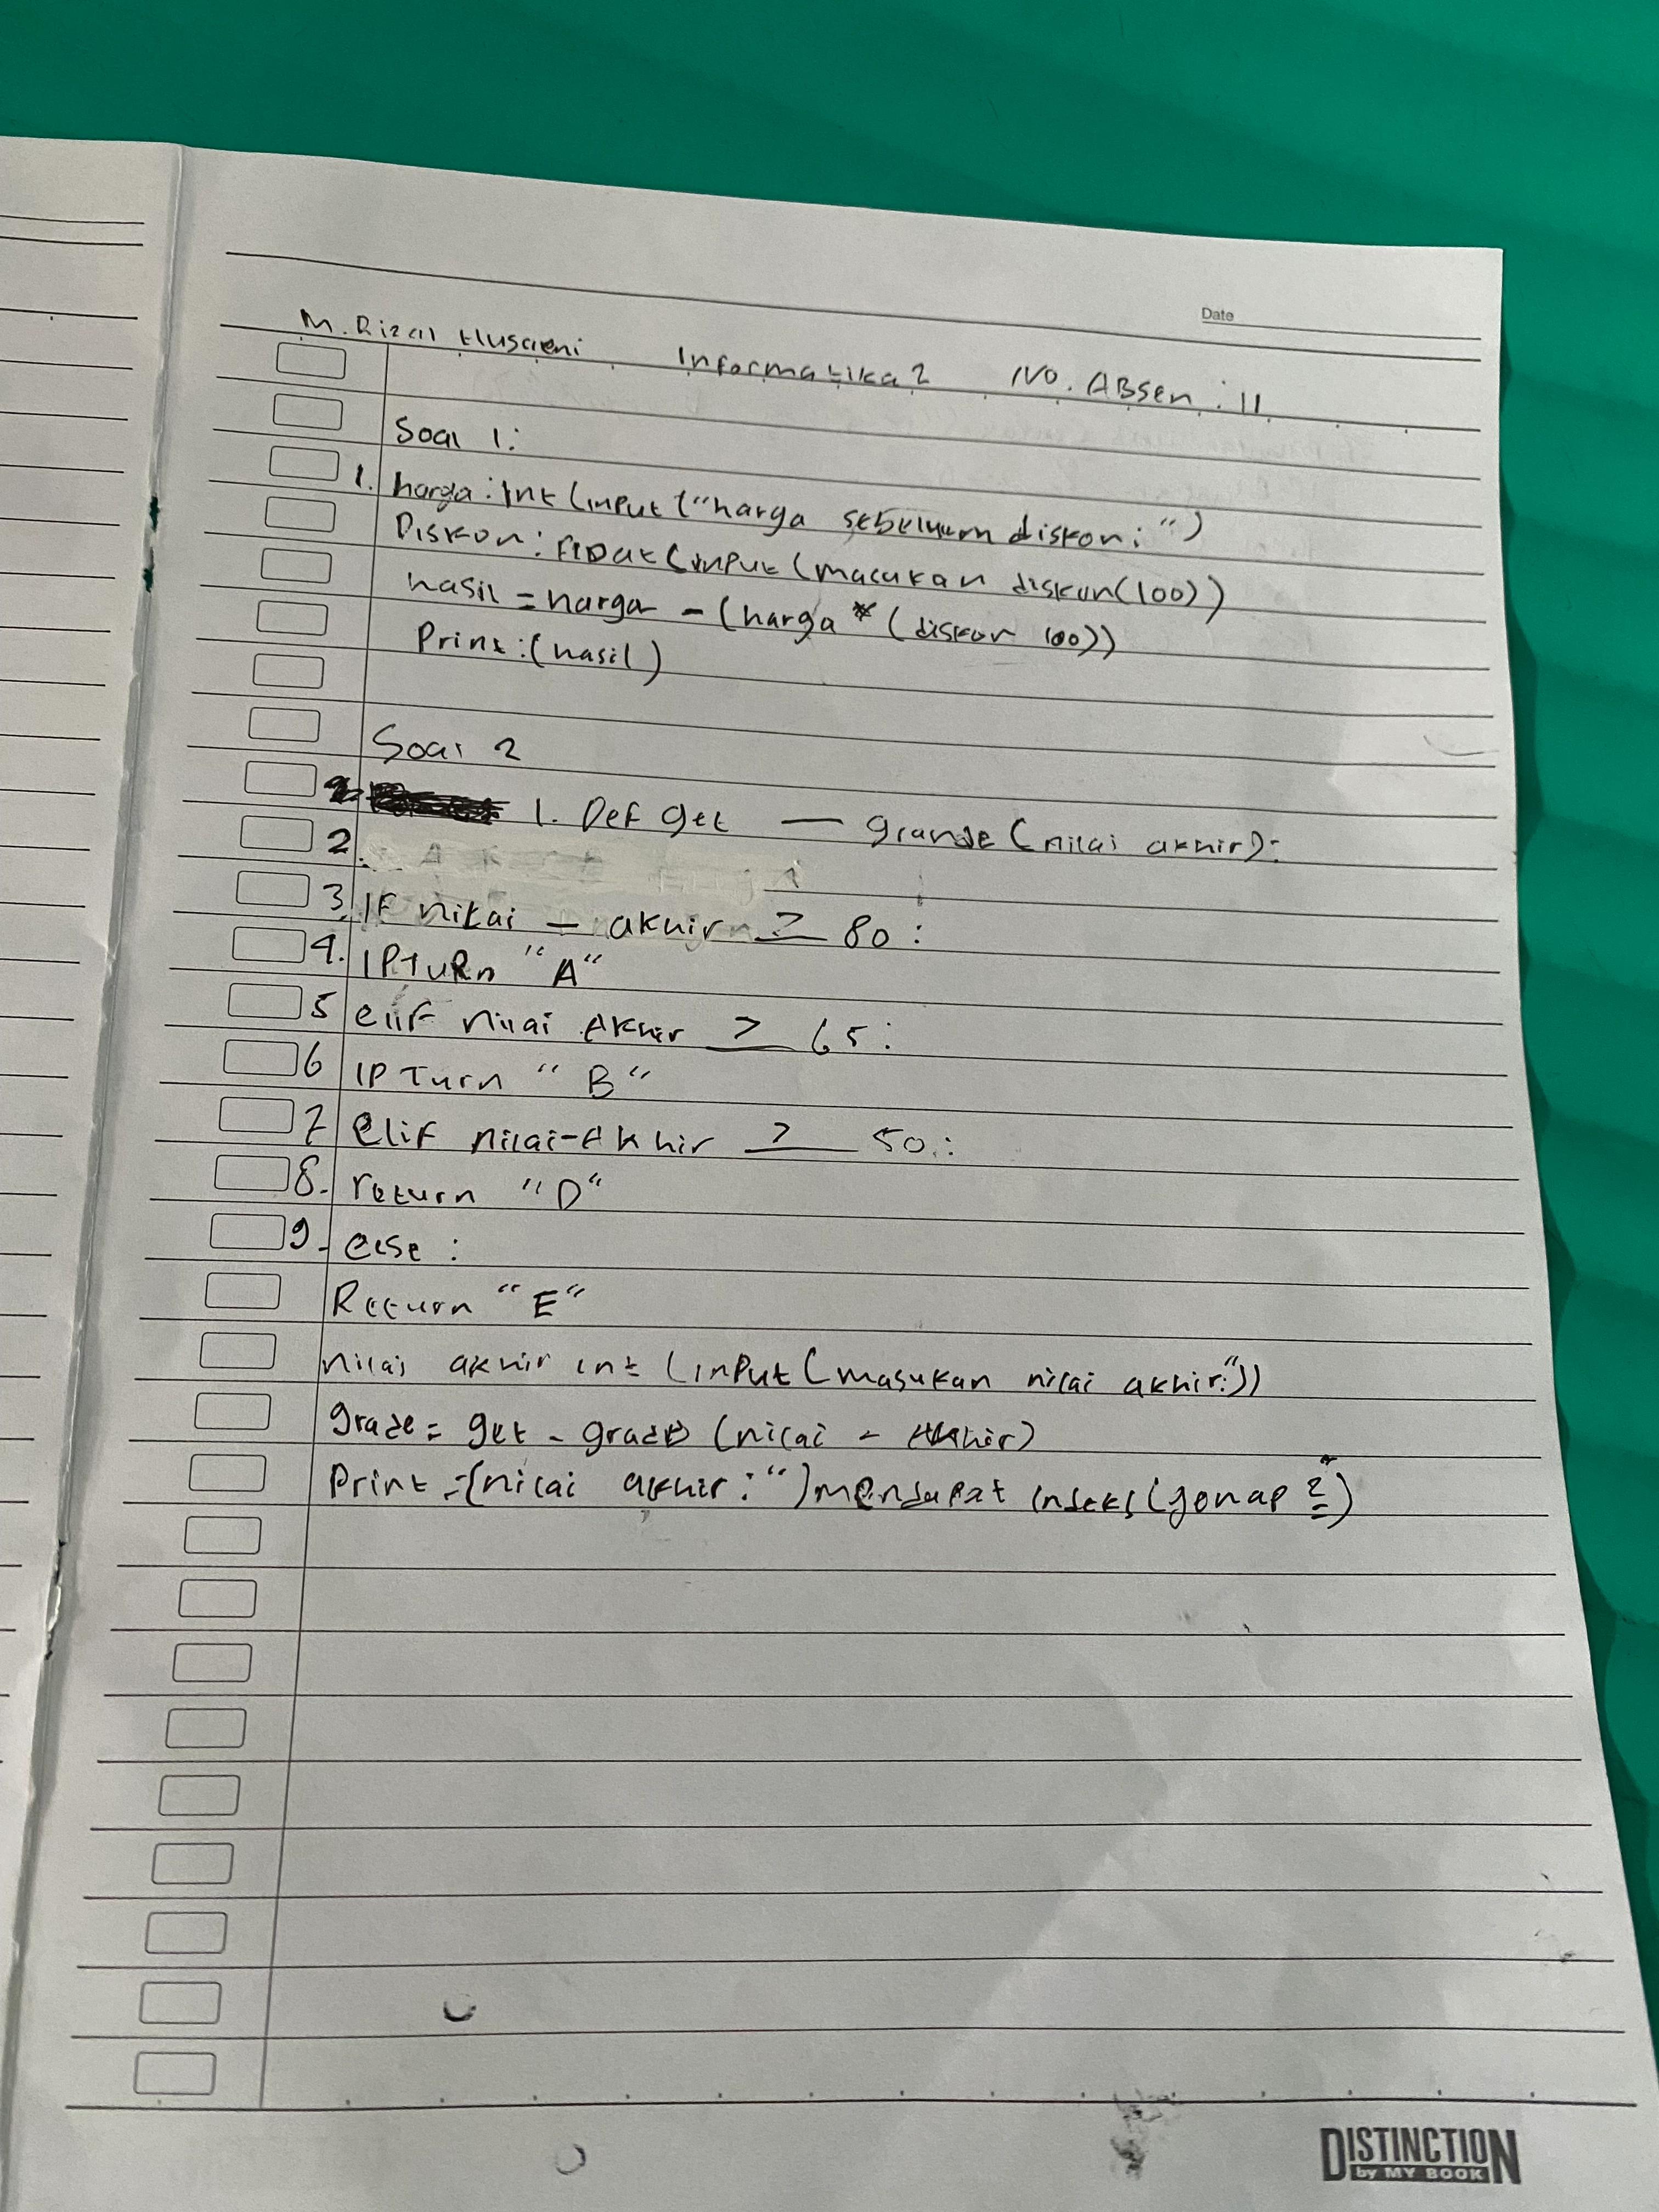 Date
M. Rizal Husaeni Informatika 2 No. Absen : 11
Soal 1:
1. harga : Int (input ("harga sebelum diskon : ")
Diskon : Float (input (macukan diskon (100))
hasil = harga - (harga * (diskon 100))
Print : (hasil)
Soal 2
1. Def get — grande (nilai akhir):
2.
3. IF nilai - akhir ≥ 80 :
4. IPTuRn "A"
5 elif nilai Akhir ≥ 65 :
6 IPTurn "B"
7 elif nilai-Akhir ≥ 50 :
8. return "D"
9. else :
Return "E"
nilai akhir int (inPut (masukan nilai akhir:"))
grade = get - grade (nilai - Akhir)
Print :(nilai akhir : ") mendapat indeks (genap
DISTINCTION
by MY BOOK